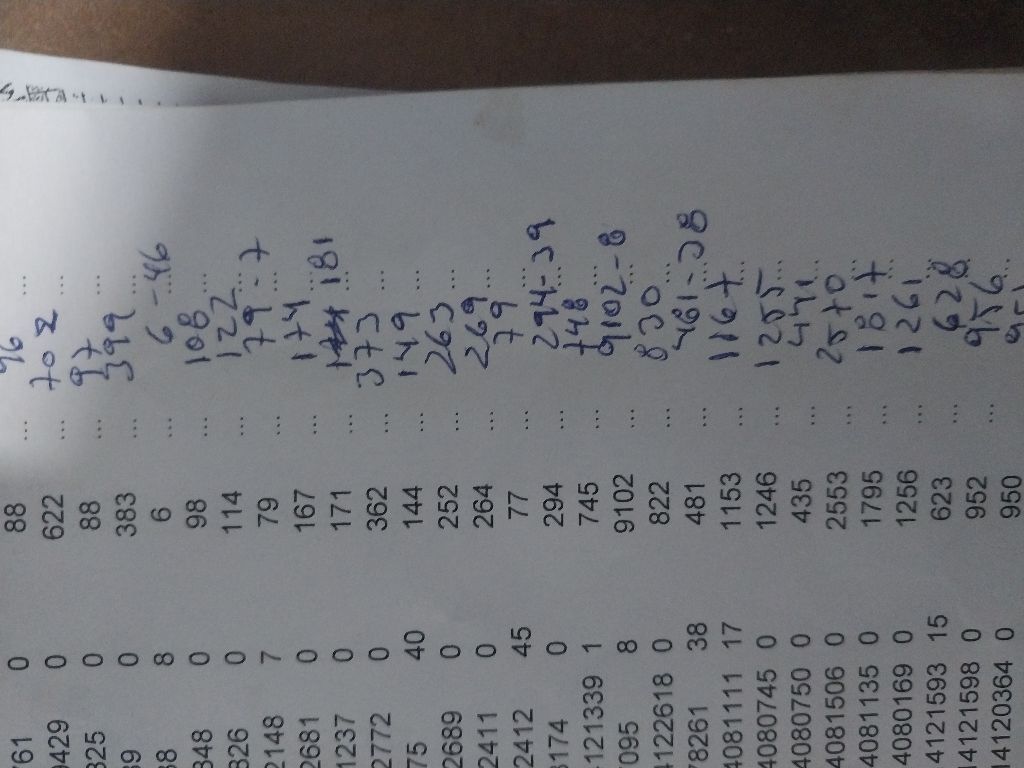 761 0 88 ... 96 ...
9429 0 622 ... 702 ...
8825 0 88 ... 97 ...
39 0 383 ... 399 ...
38 8 6 ... 6-46 ...
348 0 98 ... 108 ...
826 0 114 ... 122 ...
2148 7 79 ... 79-7 ...
2681 0 167 ... 174 ...
1237 0 171 ... 181 ...
2772 0 362 ... 373 ...
75 40 144 ... 149 ...
2689 0 252 ... 263 ...
2411 0 264 ... 269 ...
2412 45 77 ... 79 ...
3174 0 294 ... 294-39 ...
1213391 745 ... 748 ...
7095 8 9102 ... 9102-8 ...
4122618 0 822 ... 830 ...
78261 38 481 ... 481-38 ...
4081111 17 1153 ... 1167 ...
4080745 0 1246 ... 1255 ...
4080750 0 435 ... 441 ...
4081506 0 2553 ... 2570 ...
4081135 0 1795 ... 1817 ...
4080169 0 1256 ... 1261 ...
4121593 15 623 ... 628 ...
4121598 0 952 ... 956 ...
4120364 0 950 ...